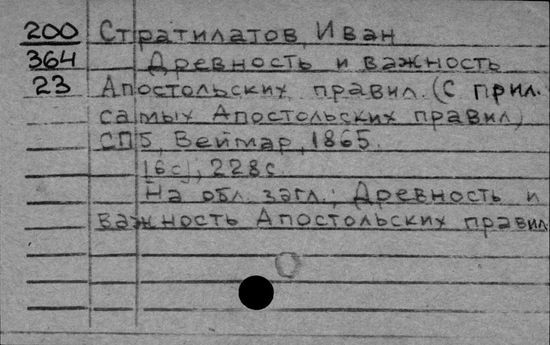 200 Стратилатов, Иван
364 Древность и важность
23 Апостольских правил. (С прил.
самых Апостольских правил)
СПб, Веймар, 1865.
16с., 228с.
На обл. загл.: Древность и
важность Апостольских правил